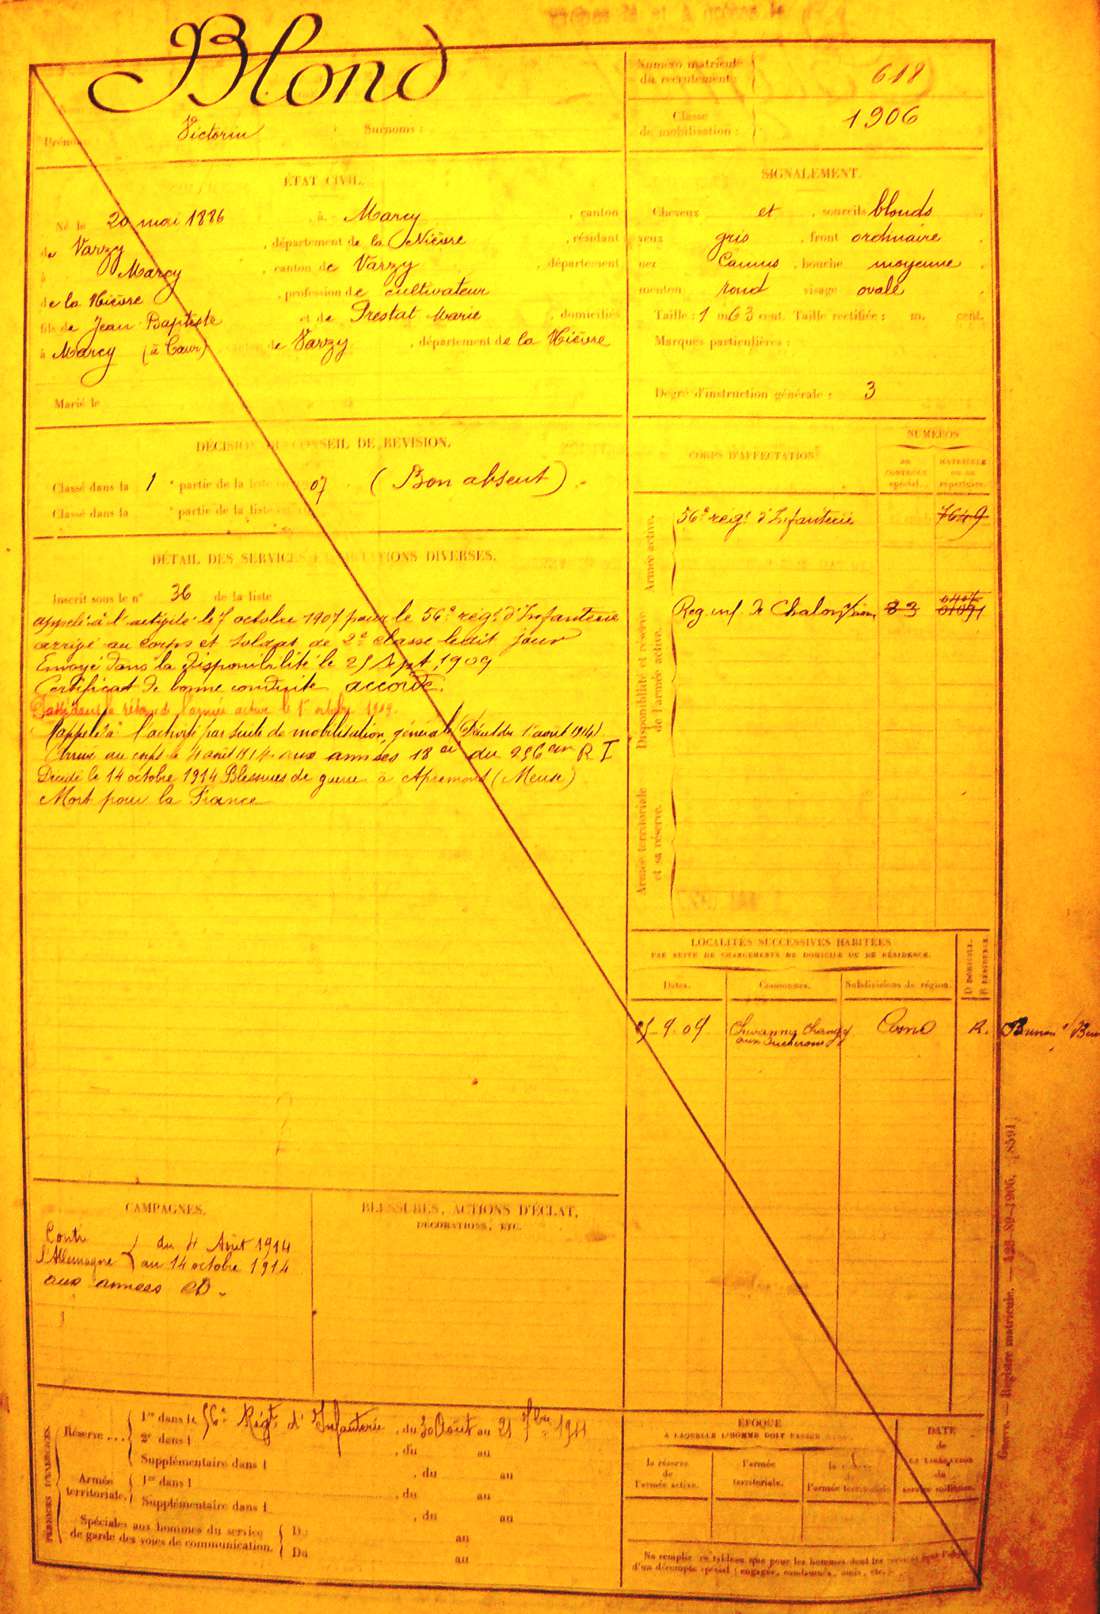 Blond
Numéro matricule
du recrutement :
618
Classe
de mobilisation :
1906
Prénoms
Victorin
Surnoms :
ÉTAT CIVIL.
Né le 20 mai 1886, à Marcy, canton
de Varzy, département de la Nièvre, résidant
à Marcy, canton de Varzy, département
de la Nièvre, profession de cultivateur
fils de Jean Baptiste et de Prestat Marie, domiciliés
à Marcy (à Cœur) canton de Varzy, département de la Nièvre
Marié le
SIGNALEMENT.
Cheveux et, sourcils blonds
yeux gris, front ordinaire
nez Camus, bouche moyenne
menton rond visage ovale
Taille : 1 m 63 cent. Taille rectifiée : m. cent.
Marques particulières :
Degré d'instruction générale : 3
DÉCISION DU CONSEIL DE REVISION.
Classé dans la 1e partie de la liste 07 (Bon absent).
Classé dans la e partie de la liste
DÉTAIL DES SERVICES ET MUTATIONS DIVERSES.
Inscrit sous le n° 36 de la liste
appelé à l'activité le 7 octobre 1907 pour le 56e régt d'Infanterie
arrivé au corps et soldat de 2e classe ledit jour
Envoyé dans la disponibilité le 25 Sept. 1909
Certificat de bonne conduite accordé.
Passé dans la rés. de l'armée active le 1er octobre 1909.
Rappelé à l'activité par suite de mobilisation générale (Décret du 1er août 1914).
Arrivé au corps le 4 août 1914 aux armées 18 du 256em R I
Décédé le 14 octobre 1914 Blessures de guerre à Apremont (Meuse)
Mort pour la France
CORPS D'AFFECTATION.
NUMÉROS
DU
CONTRÔLE
spécial.
MATRICULE
OU DU
répertoire.
Armée active.
56e régt d'Infanterie
7649
Disponibilité et réserve
de l'armée active.
Reg. inf. de Chalon s/Saône
Armée territoriale
et sa réserve.
LOCALITÉS SUCCESSIVES HABITÉES
PAR SUITE DE CHANGEMENTS DE DOMICILE OU DE RÉSIDENCE.
Dates.
Communes.
Subdivisions de région.
D DOMICILE.
R RÉSIDENCE.
25-9-09
Cosne
R.
CAMPAGNES.
Contre
l'Allemagne
du 4 Août 1914
au 14 octobre 1914
aux armées CD.
BLESSURES, ACTIONS D'ÉCLAT,
DÉCORATIONS, ETC.
PÉRIODES D'EXERCICES.
Réserve ...
1re dans le 56e Régt d'Infanterie, du 30 Août au 21 7bre 1911
2e dans l , du au
Supplémentaire dans l , du au
Armée
territoriale.
1re dans l , du au
Supplémentaire dans l , du au
Spéciales aux hommes du service
de garde des voies de communication.
Du au
Du au
ÉPOQUE
À LAQUELLE L'HOMME DOIT PASSER DANS
la réserve
de
l'armée active.
l'armée
territoriale.
la réserve
de
l'armée territoriale.
DATE
de
LA LIBÉRATION
du
service militaire.
Ne remplir ce tableau que pour les hommes dont les services font l'objet
d'un décompte spécial (engagés, condamnés, omis, etc.)
Guerre. — Registre matricule. — 423-39-1906. [8591]